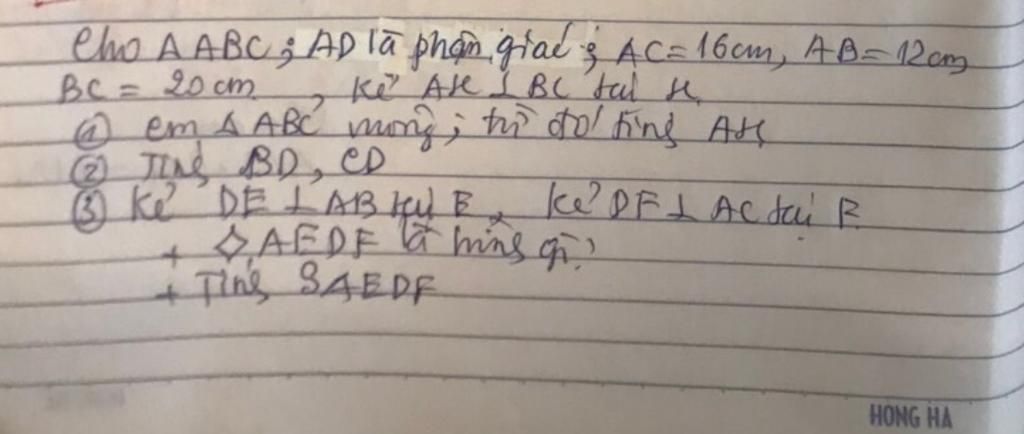 Cho ΔABC; AD là phận giác; AC = 16cm, AB = 12cm
BC = 20 cm, kẻ AH ⊥ BC tại H
① cm ΔABC vuông; từ đó tính AH
② Tính BD, CD
③ Kẻ DE ⊥ AB tại E, kẻ DF ⊥ AC tại F.
+ ◇AEDF là hình gì?
+ Tính SAEDF
HONG HA